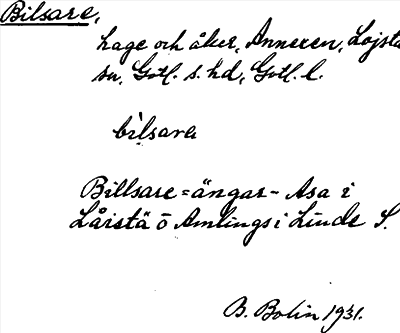 Bilsare,
hage och åker, Annexen, Lojsta
sn, Gotl. s. hd, Gotl. l.
bìlsara
Billsare=ängar- Asa i
Låistä ö Amlings i Linde S.
B. Bolin 1931.